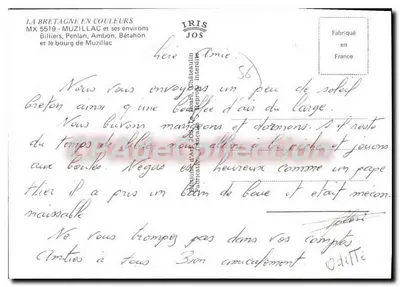 LA BRETAGNE EN COULEURS
MX 5519 - MUZILLAC et ses environs
Billiers, Penlan, Ambon, Bétahon
et le bourg de Muzillac
IRIS
JOS
Fabriqué
en
France
56
Chère Amie
Nous vous envoyons un peu de soleil
breton ainsi qu'une bouffée d'air du large.
Nous buvons mangeons et dormons. S'il reste
du temps de libre nous allons à la pêche et jouons
aux boules. Négus est heureux comme un pape
Hier il a pris un bain de boue et était mécon-
naissable
Ne vous trompez pas dans vos comptes
Amitiés à tous Bien amicalement
Odette